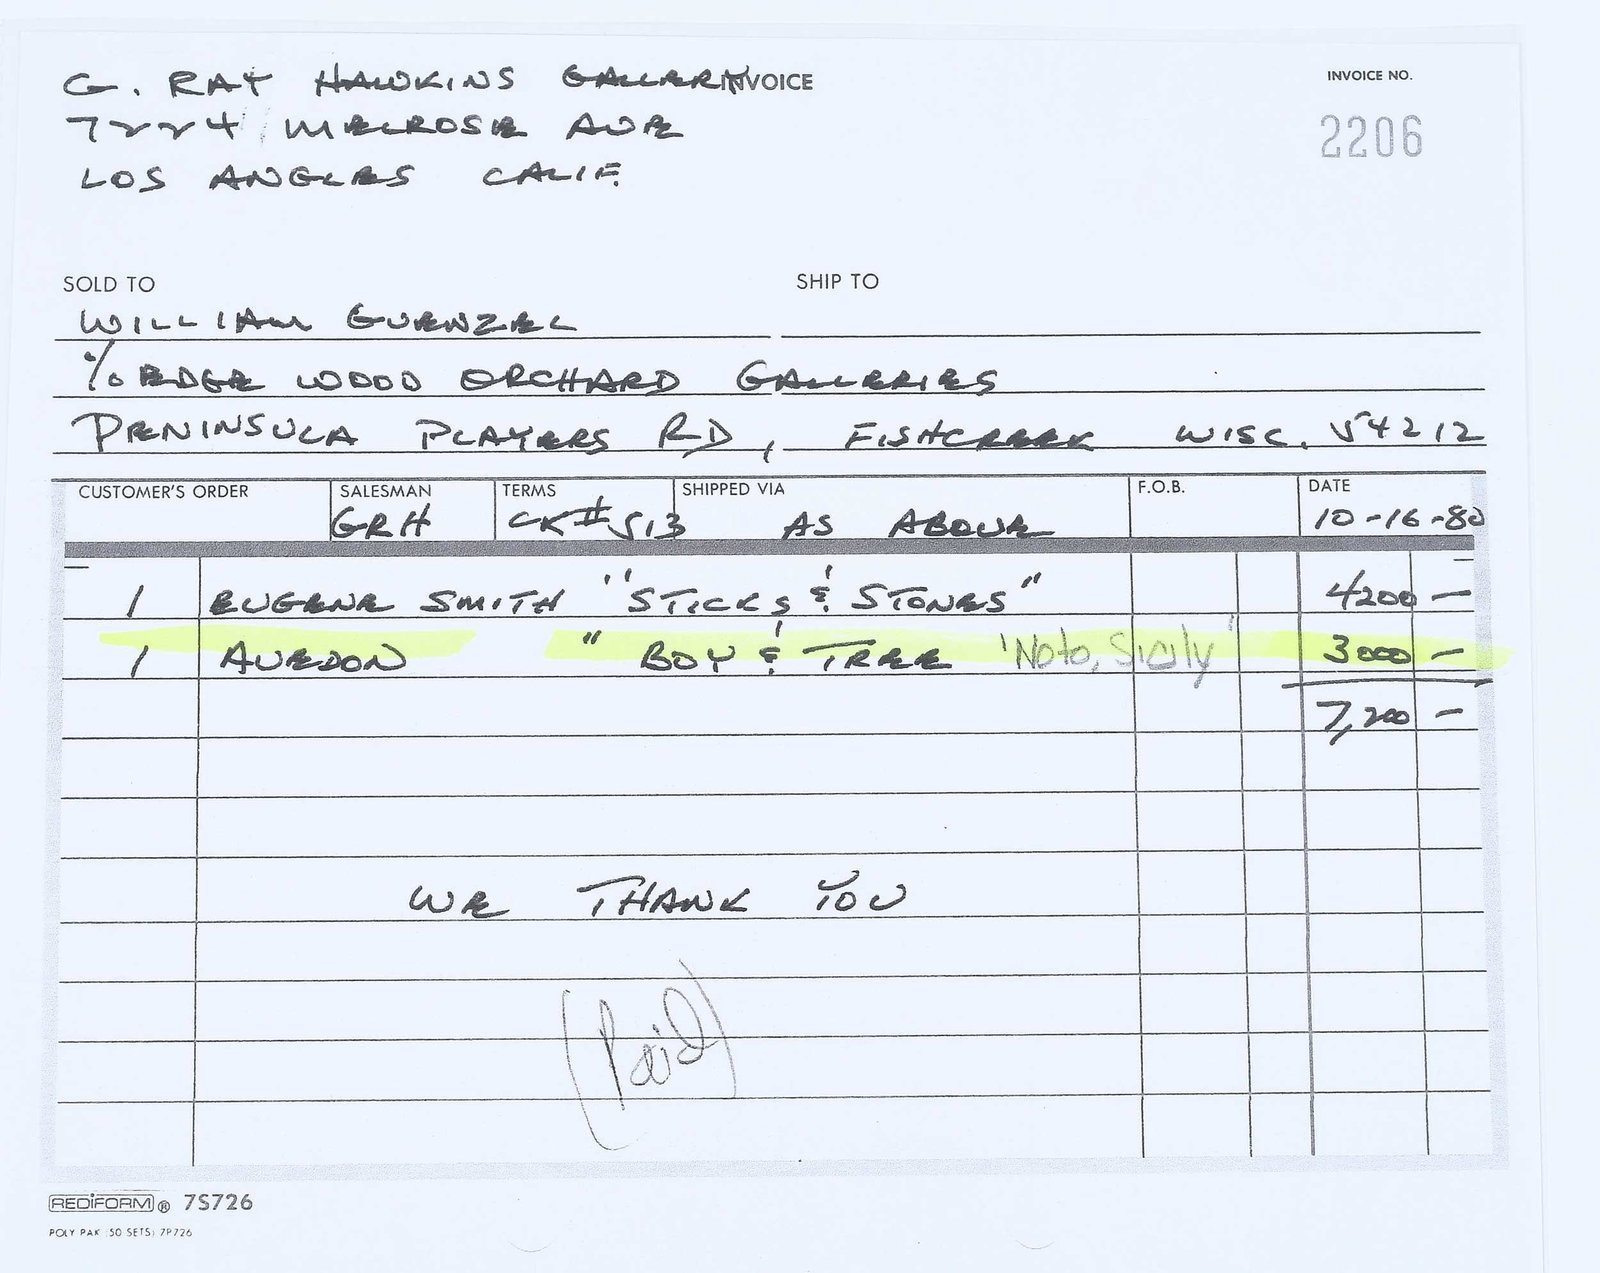 G. RAY HAWKINS GALLERY INVOICE
INVOICE NO.
7224 MELROSE AVE
2206
LOS ANGELES CALIF.
SOLD TO
SHIP TO
WILLIAM GUENZEL
% EDGE WOOD ORCHARD GALLERIES
PENINSULA PLAYERS RD, FISHCREEK WISC. 54212
CUSTOMER'S ORDER SALESMAN TERMS SHIPPED VIA F.O.B. DATE
GRH CK# 513 AS ABOVE 10-16-80
1 EUGENE SMITH "STICKS & STONES" 4200 —
1 AVEDON " BOY & TREE 'Noto, Sicily' 3000 —
7,200 —
WE THANK YOU
(Paid)
REDIFORM® 7S726
POLY PAK (50 SETS) 7P726